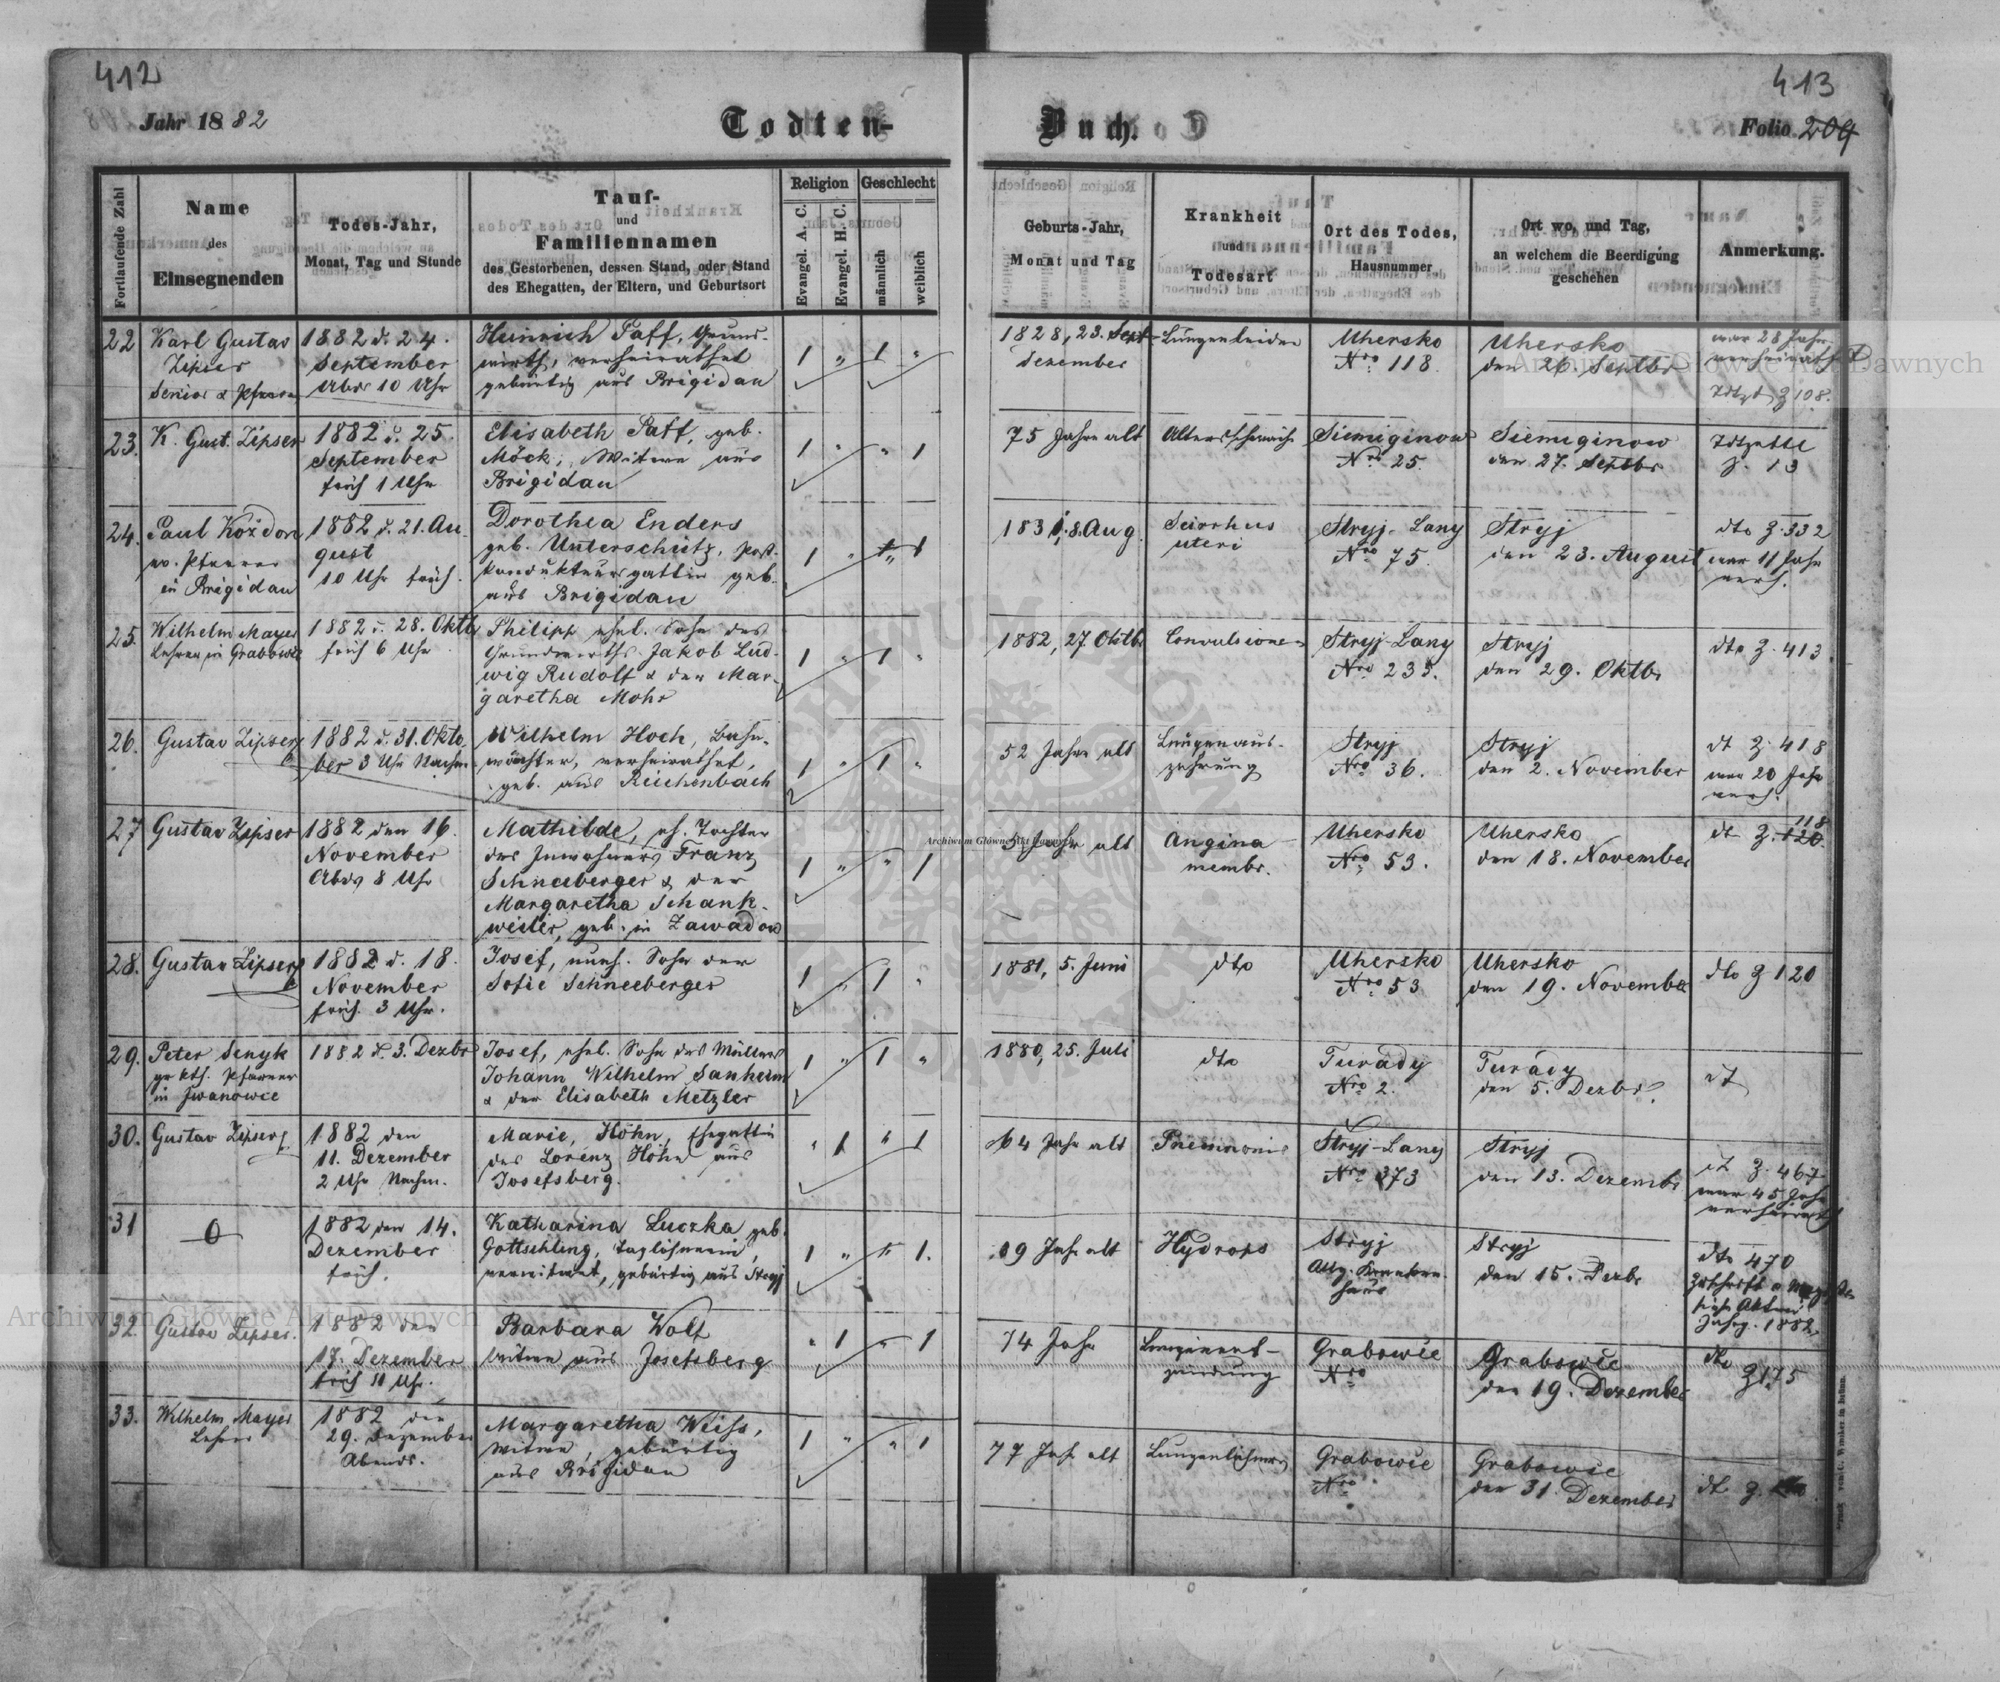 412
413
Jahr 1882
Todten-
Buch.
Folio 204
Fortlaufende Zahl
Name
des
Einsegnenden
Todes-Jahr,
Monat, Tag und Stunde
Tauf-
und
Familiennamen
des Gestorbenen, dessen Stand, oder Stand
des Ehegatten, der Eltern, und Geburtsort
Religion
Evangel. A. C.
Evangel. H. C.
Geschlecht
männlich
weiblich
Geburts-Jahr,
Monat und Tag
Krankheit
und
Todesart
Ort des Todes,
Hausnummer
Ort wo, und Tag,
an welchem die Beerdigung
geschehen
Anmerkung.
22
Karl Gustav
Zipser
Senior & Pfarrer
1882 d. 24.
September
Abds 10 Uhr
Heinrich Paff, Grund-
wirth, verheirathet
gebürtig aus Brigidau
1 „ 1 „
1828, 23. Sept
Dezember
Lungenleiden
Uhersko
Nro 118
Uhersko
den 26. Septbr
war 28 Jahr
verheirathet
Z 108.
23.
K. Gust. Zipser
1882 d. 25.
September
früh 1 Uhr
Elisabeth Paff, geb.
Möck, Witwe aus
Brigidau
1 „ „ 1
75 Jahre alt
Altersschwäche
Siemiginow
Nro 25.
Siemiginow
den 27. Septbr
Z. 13
24.
Paul Koždon
ev. Pfarrer
in Brigidau
1882 d. 21. Au
gust
10 Uhr früh.
Dorothea Enders
geb. Unterschütz, Post-
kondukteursgattin geb.
aus Brigidau
1 „ „ 1
1831, 8. Aug.
Scirrhus
uteri
Stryj-Lany
Nro 75.
Stryj
den 23. August
dto Z. 332
war 11 Jahr
verh.
25.
Wilhelm Mayer
Lehrer in Grabowce
1882 d. 28. Oktb
früh 6 Uhr
Philipp ehel. Sohn des
Grundwirths Jakob Lud-
wig Rudolf & der Mar-
garetha Mohr
1 „ 1 „
1882, 27. Oktbr
Convulsionen
Stryj-Lany
Nro 235.
Stryj
den 29. Oktbr
dto Z. 413
26.
Gustav Zipser
1882 d. 31. Okto
ber 3 Uhr Nachm
Wilhelm Hoch, Bahn-
wächter, verheirathet,
geb. aus Reichenbach
1 „ 1 „
52 Jahre alt
Lungenaus-
zehrung
Stryj
Nro 36.
Stryj
den 2. November
dt Z. 418
war 20 Jahr
verh.
27
Gustav Zipser
1882 den 16.
November
Abds 8 Uhr
Mathilde, eh. Tochter
des Inwohners Franz
Schneeberger & der
Margaretha Schank-
weiler, geb. in Zawadow
1 „ „ 1
5 Jahre alt
Angina
membr.
Uhersko
Nro 53.
Uhersko
den 18. November
118
dt Z. 120
28.
Gustav Zipser
1882 d. 18.
November
früh. 3 Uhr.
Josef, uneh. Sohn der
Sofie Schneeberger
1 „ 1 „
1881, 5. Juni
dto
Uhersko
Nro 53
Uhersko
den 19. November
dto Z 120
29.
Peter Senyk
gr kth. Pfarrer
in Iwanowce
1882 d. 3. Dezbr
Josef, ehel. Sohn des Müllers
Johann Wilhelm Sanheim
& der Elisabeth Metzler
1 „ 1 „
1880, 25. Juli
dto
Turady
Nro 2.
Turady
den 5. Dezbr.
dt
30.
Gustav Zipser
1882 den
11. Dezember
2 Uhr Nachm.
Marie, Höhn, Ehegattin
des Lorenz Höhn aus
Josefsberg.
„ 1 „ 1
64 Jahr alt
Pneumonie
Stryj-Lany
Nro 373
Stryj
den 13. Dezembr
dt Z. 467
war 45 Jahr
verheirath
31
1882 den 14.
Dezember
früh.
Katharina Luczka geb.
Gottschling, Taglöhnerin,
verwitwet, gebürtig aus Stryj
1 „ „ 1.
69 Jahr alt
Hydrops
Stryj
Allg. Kranken-
haus
Stryj
den 15. Dezbr
dto 470
Akten
Jahrg. 1882
32.
Gustav Zipser.
1882 den
17. Dezember
früh 11 Uhr.
Barbara Wolf
Witwe aus Josefsberg
„ 1 „ 1
74 Jahr
Lungenent-
zündung
Grabowce
Nro
Grabowce
den 19. Dezember
dto
Z 175
33.
Wilhelm Mayer
Lehrer
1882 den
29. Dezember
Abends.
Margaretha Weiss,
Witwe, gebürtig
aus Brigidau
1 „ „ 1
77 Jahr alt
Lungenlähmung
Grabowce
Nro
Grabowce
den 31. Dezember
dt Z.
Archiwum Główne Akt Dawnych
Archiwum Główne Akt Dawnych
Archiwum Główne Akt Dawnych